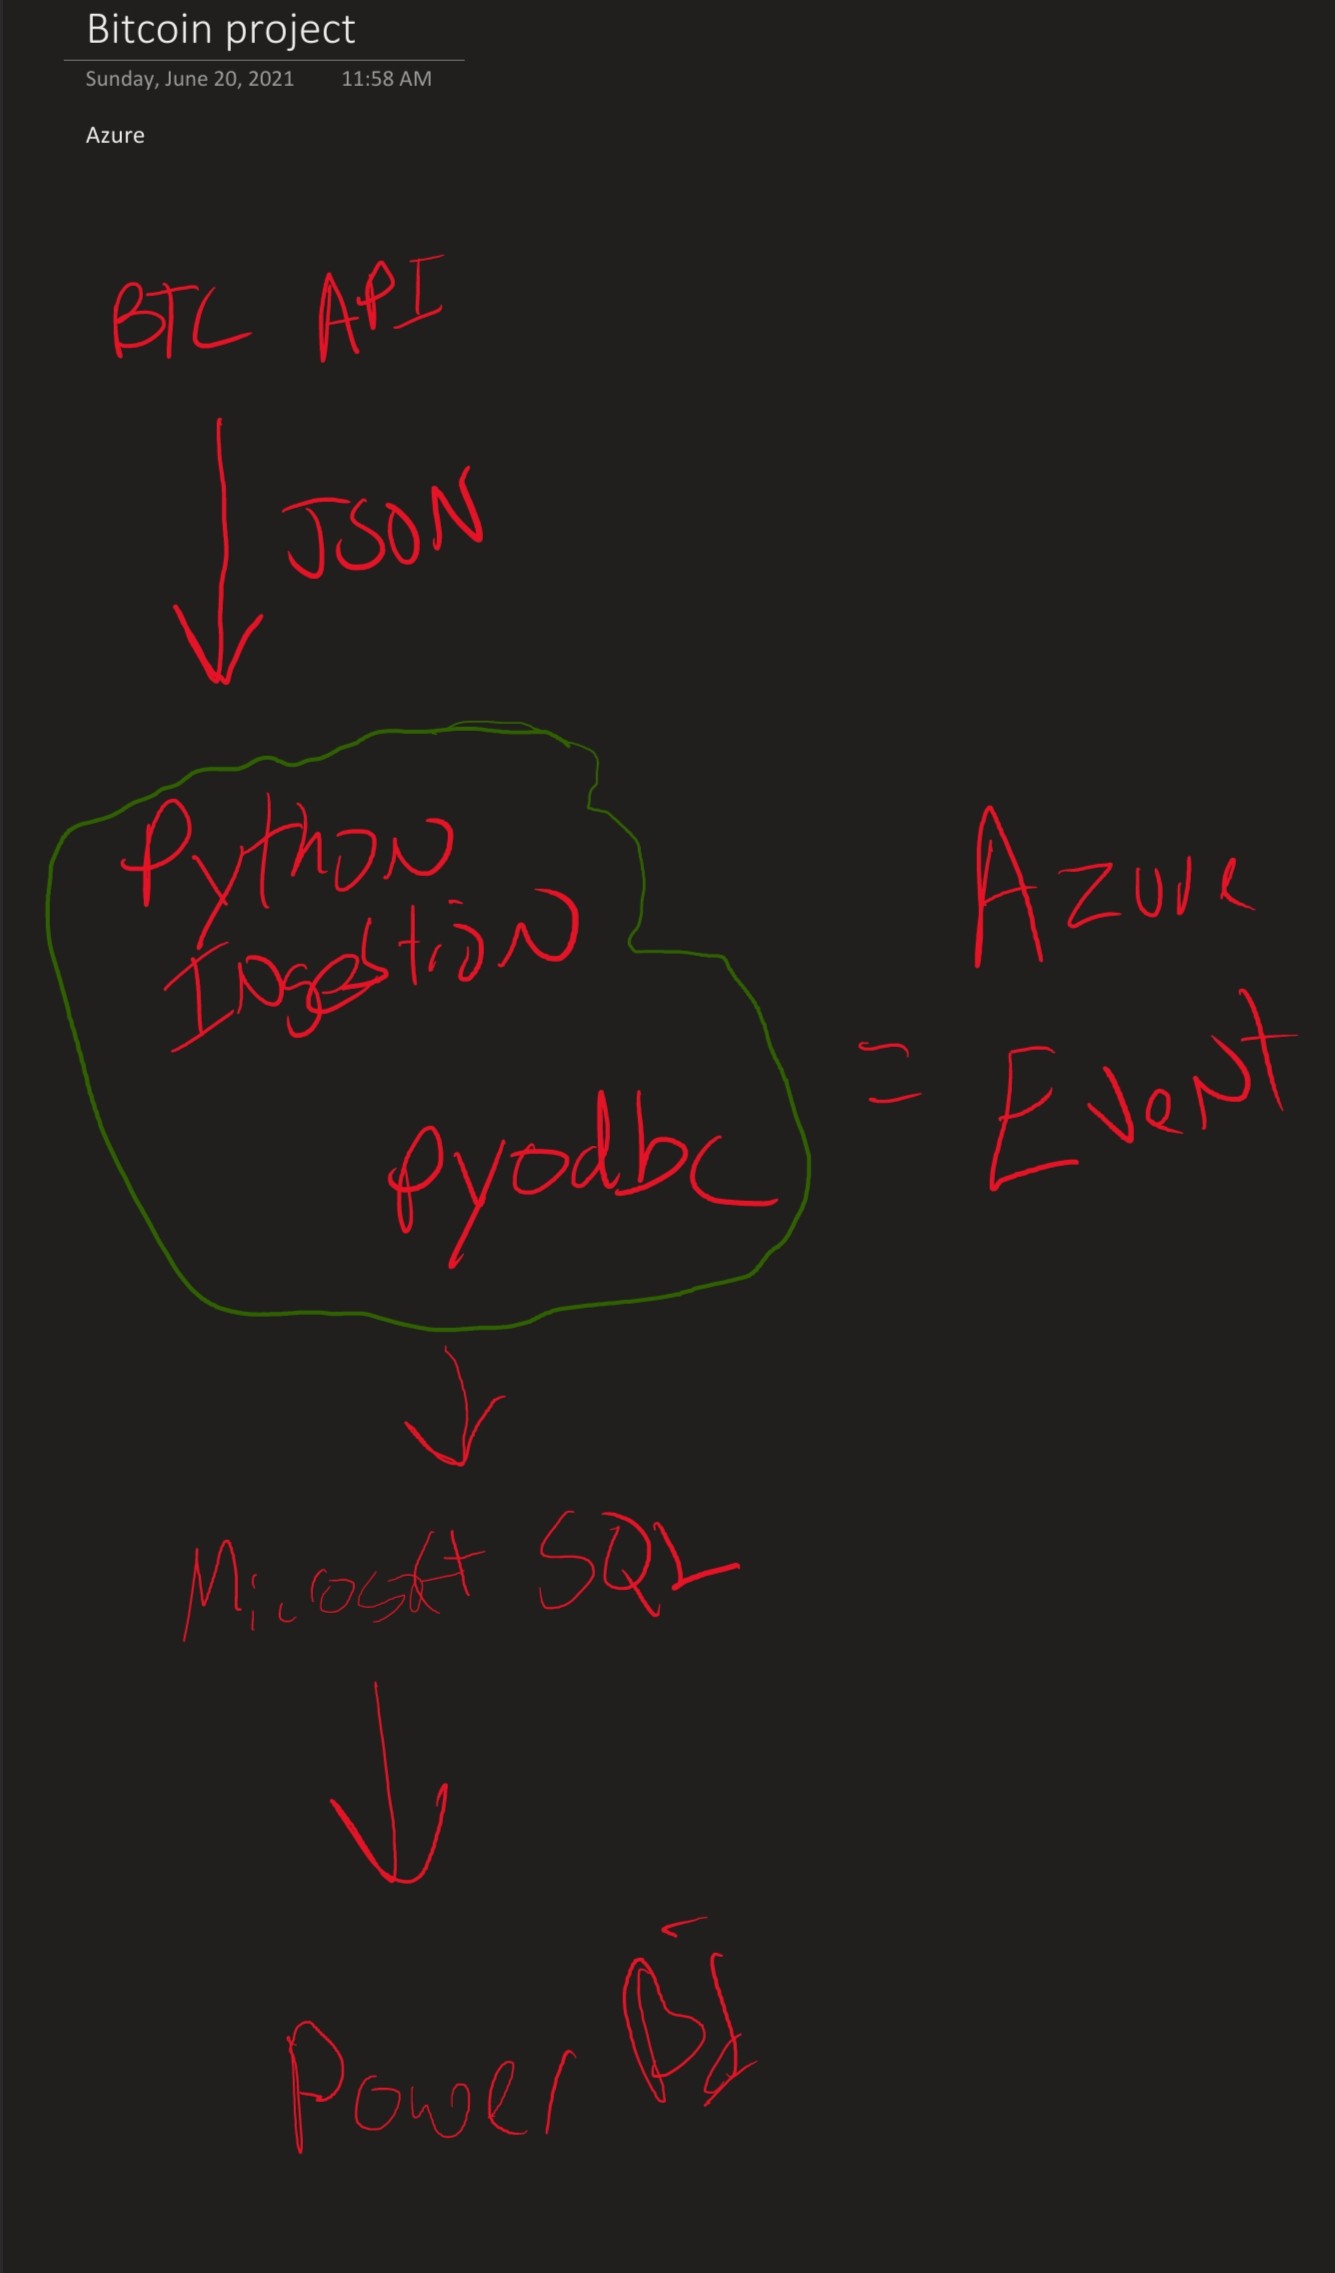 Bitcoin project
Sunday, June 20, 2021 11:58 AM
Azure
BTC API
JSON
Python
Ingestion
pyodbc
= Azure
Event
Micosft SQL
Power BI